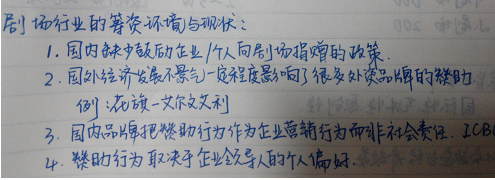 剧场行业的筹资环境与现状：
1. 国内缺少鼓励企业/个人向剧场捐赠的政策.
2. 国外经济发展不景气一定程度影响了很多外资品牌的赞助
例：花旗—艾尔文艾利
3. 国内品牌把赞助行为作为企业营销行为而非社会责任. ICB
4. 赞助行为取决于企业领导人的个人偏好.